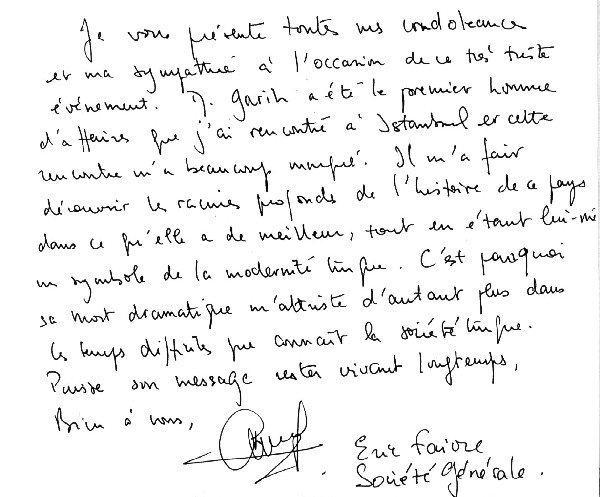 Je vous présente toutes mes condoléances
et ma sympathie à l'occasion de ce très triste
événement. M. Garih a été le premier homme
d'affaires que j'ai rencontré à Istanbul et cette
rencontre m'a beaucoup marqué. Il m'a fait
découvrir les racines profonds de l'histoire de ce pays
dans ce qu'elle a de meilleur, tout en étant lui-mê
un symbole de la modernité turque. C'est pourquoi
sa mort dramatique m'attriste d'autant plus dans
les temps difficiles que connaît la société turque.
Puisse son message rester vivant longtemps,
Bien à vous,
Eric Faivre
Société Générale.